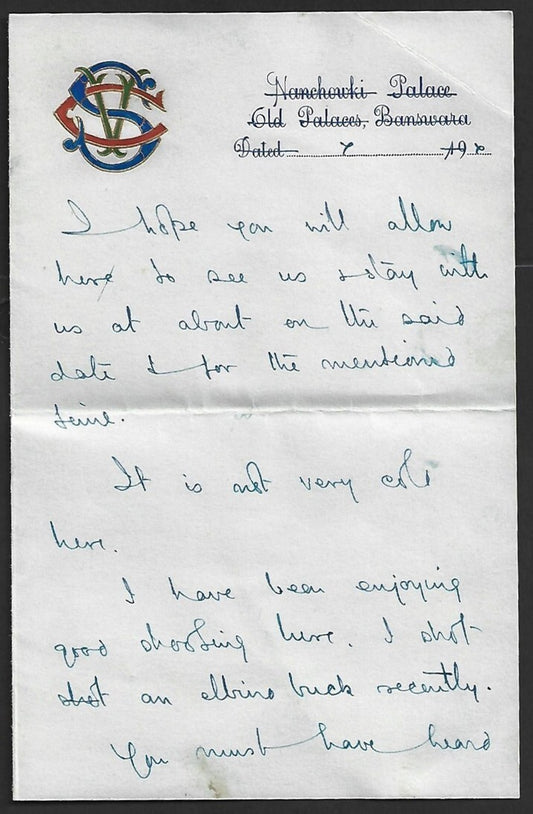 SVS
Nanchowki Palace
Old Palaces, Banswara
Dated 7 19
I hope you will allow
her to see us & stay with
us at about on the said
date & for the mentioned
time.
It is not very cold
here.
I have been enjoying
good shooting here. I shot
shot an albino buck recently.
You must have heard